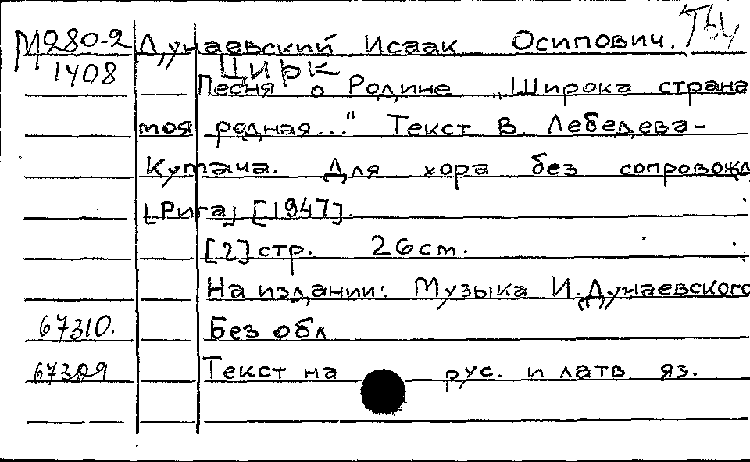 М280-2 Дунаевский Исаак Осипович.
1408 Цирк
Песня о Родине „Широка страна
моя родная..." Текст В. Лебедева-
Кумача. Для хора без сопровожд
[Рига] [1947].
[2] стр. 26 см.
На издании: Музыка И. Дунаевского
67310. Без обл
67309 Текст на рус. и латв яз.